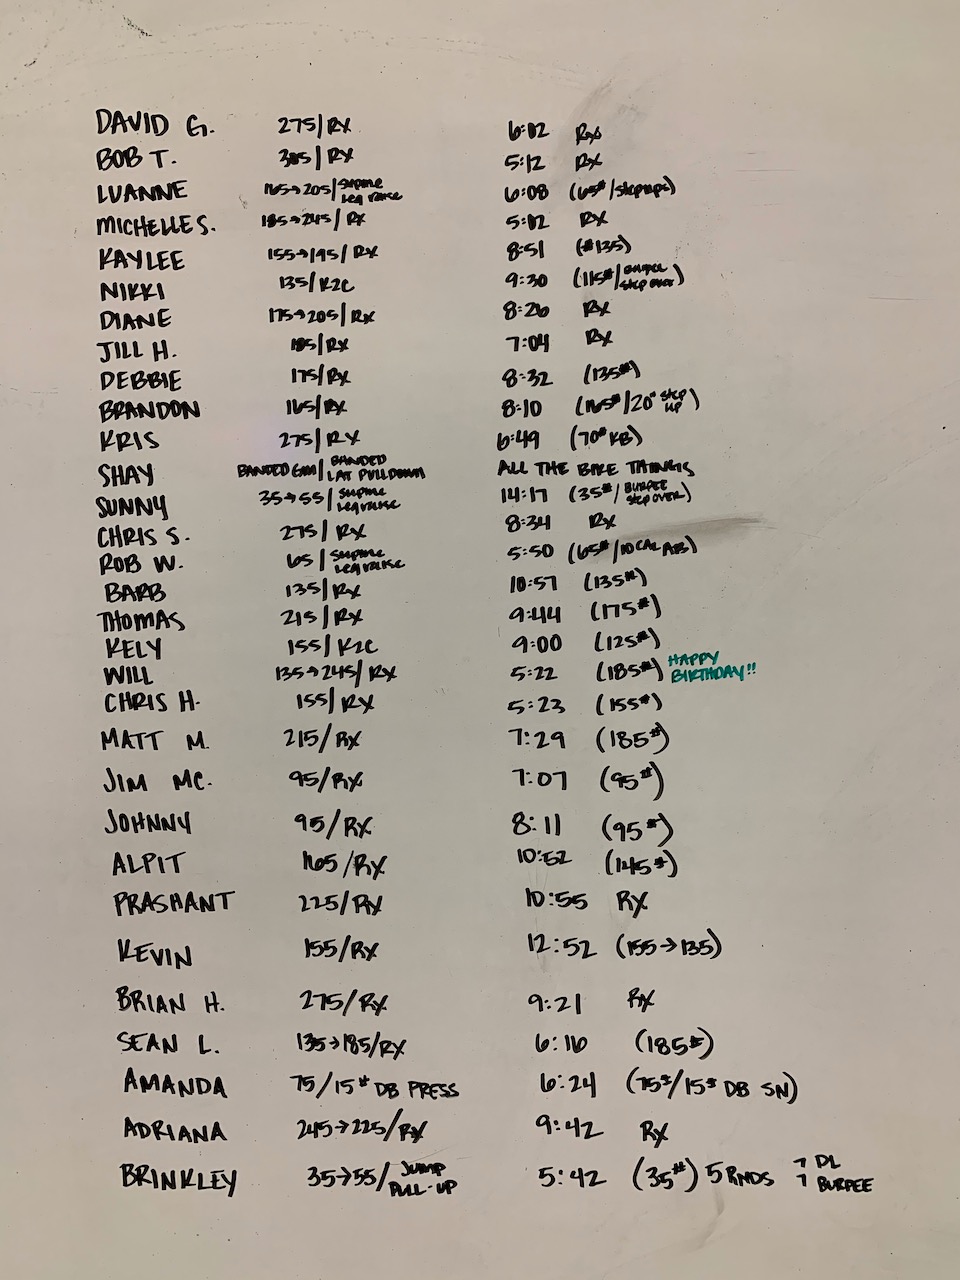 DAVID G. 275/RX 6:02 Rx
BOB T. 305/RX 5:12 Rx
LUANNE 165→205/supine leg raise 6:08 (65#/stepups)
MICHELLE S. 185→245/RX 5:02 RX
KAYLEE 155→195/RX 8:51 (#135)
NIKKI 135/K2C 9:30 (115#/burpee step over)
DIANE 175→205/RX 8:26 RX
JILL H. 185/RX 7:04 RX
DEBBIE 175/RX 8:32 (135#)
BRANDON 165/RX 8:10 (165#/20" step up)
KRIS 275/RX 6:49 (70# KB)
SHAY BANDED GM/BANDED LAT PULLDOWN ALL THE BIKE THINGS
SUNNY 35→55/supine leg raise 14:17 (35#/BURPEE step over)
CHRIS S. 275/RX 8:34 RX
ROB W. 65/supine leg raise 5:50 (65#/10 CAL AB)
BARB 135/RX 10:57 (135#)
THOMAS 215/RX 9:44 (175#)
KELY 155/K2C 9:00 (125#)
WILL 135→245/RX 5:22 (185#) HAPPY BIRTHDAY!!
CHRIS H. 155/RX 5:23 (155#)
MATT M. 215/RX 7:29 (185#)
JIM MC. 95/RX 7:07 (95#)
JOHNNY 95/RX 8:11 (95#)
ALPIT 165/RX 10:52 (145#)
PRASHANT 225/RX 10:55 RX
KEVIN 155/RX 12:52 (155→135)
BRIAN H. 275/RX 9:21 RX
SEAN L. 135→185/RX 6:16 (185#)
AMANDA 75/15# DB PRESS 6:24 (75#/15# DB SN)
ADRIANA 245→225/RX 9:42 RX
BRINKLEY 35→55/JUMP PULL-UP 5:42 (35#) 5 RNDS 7 DL 7 BURPEE